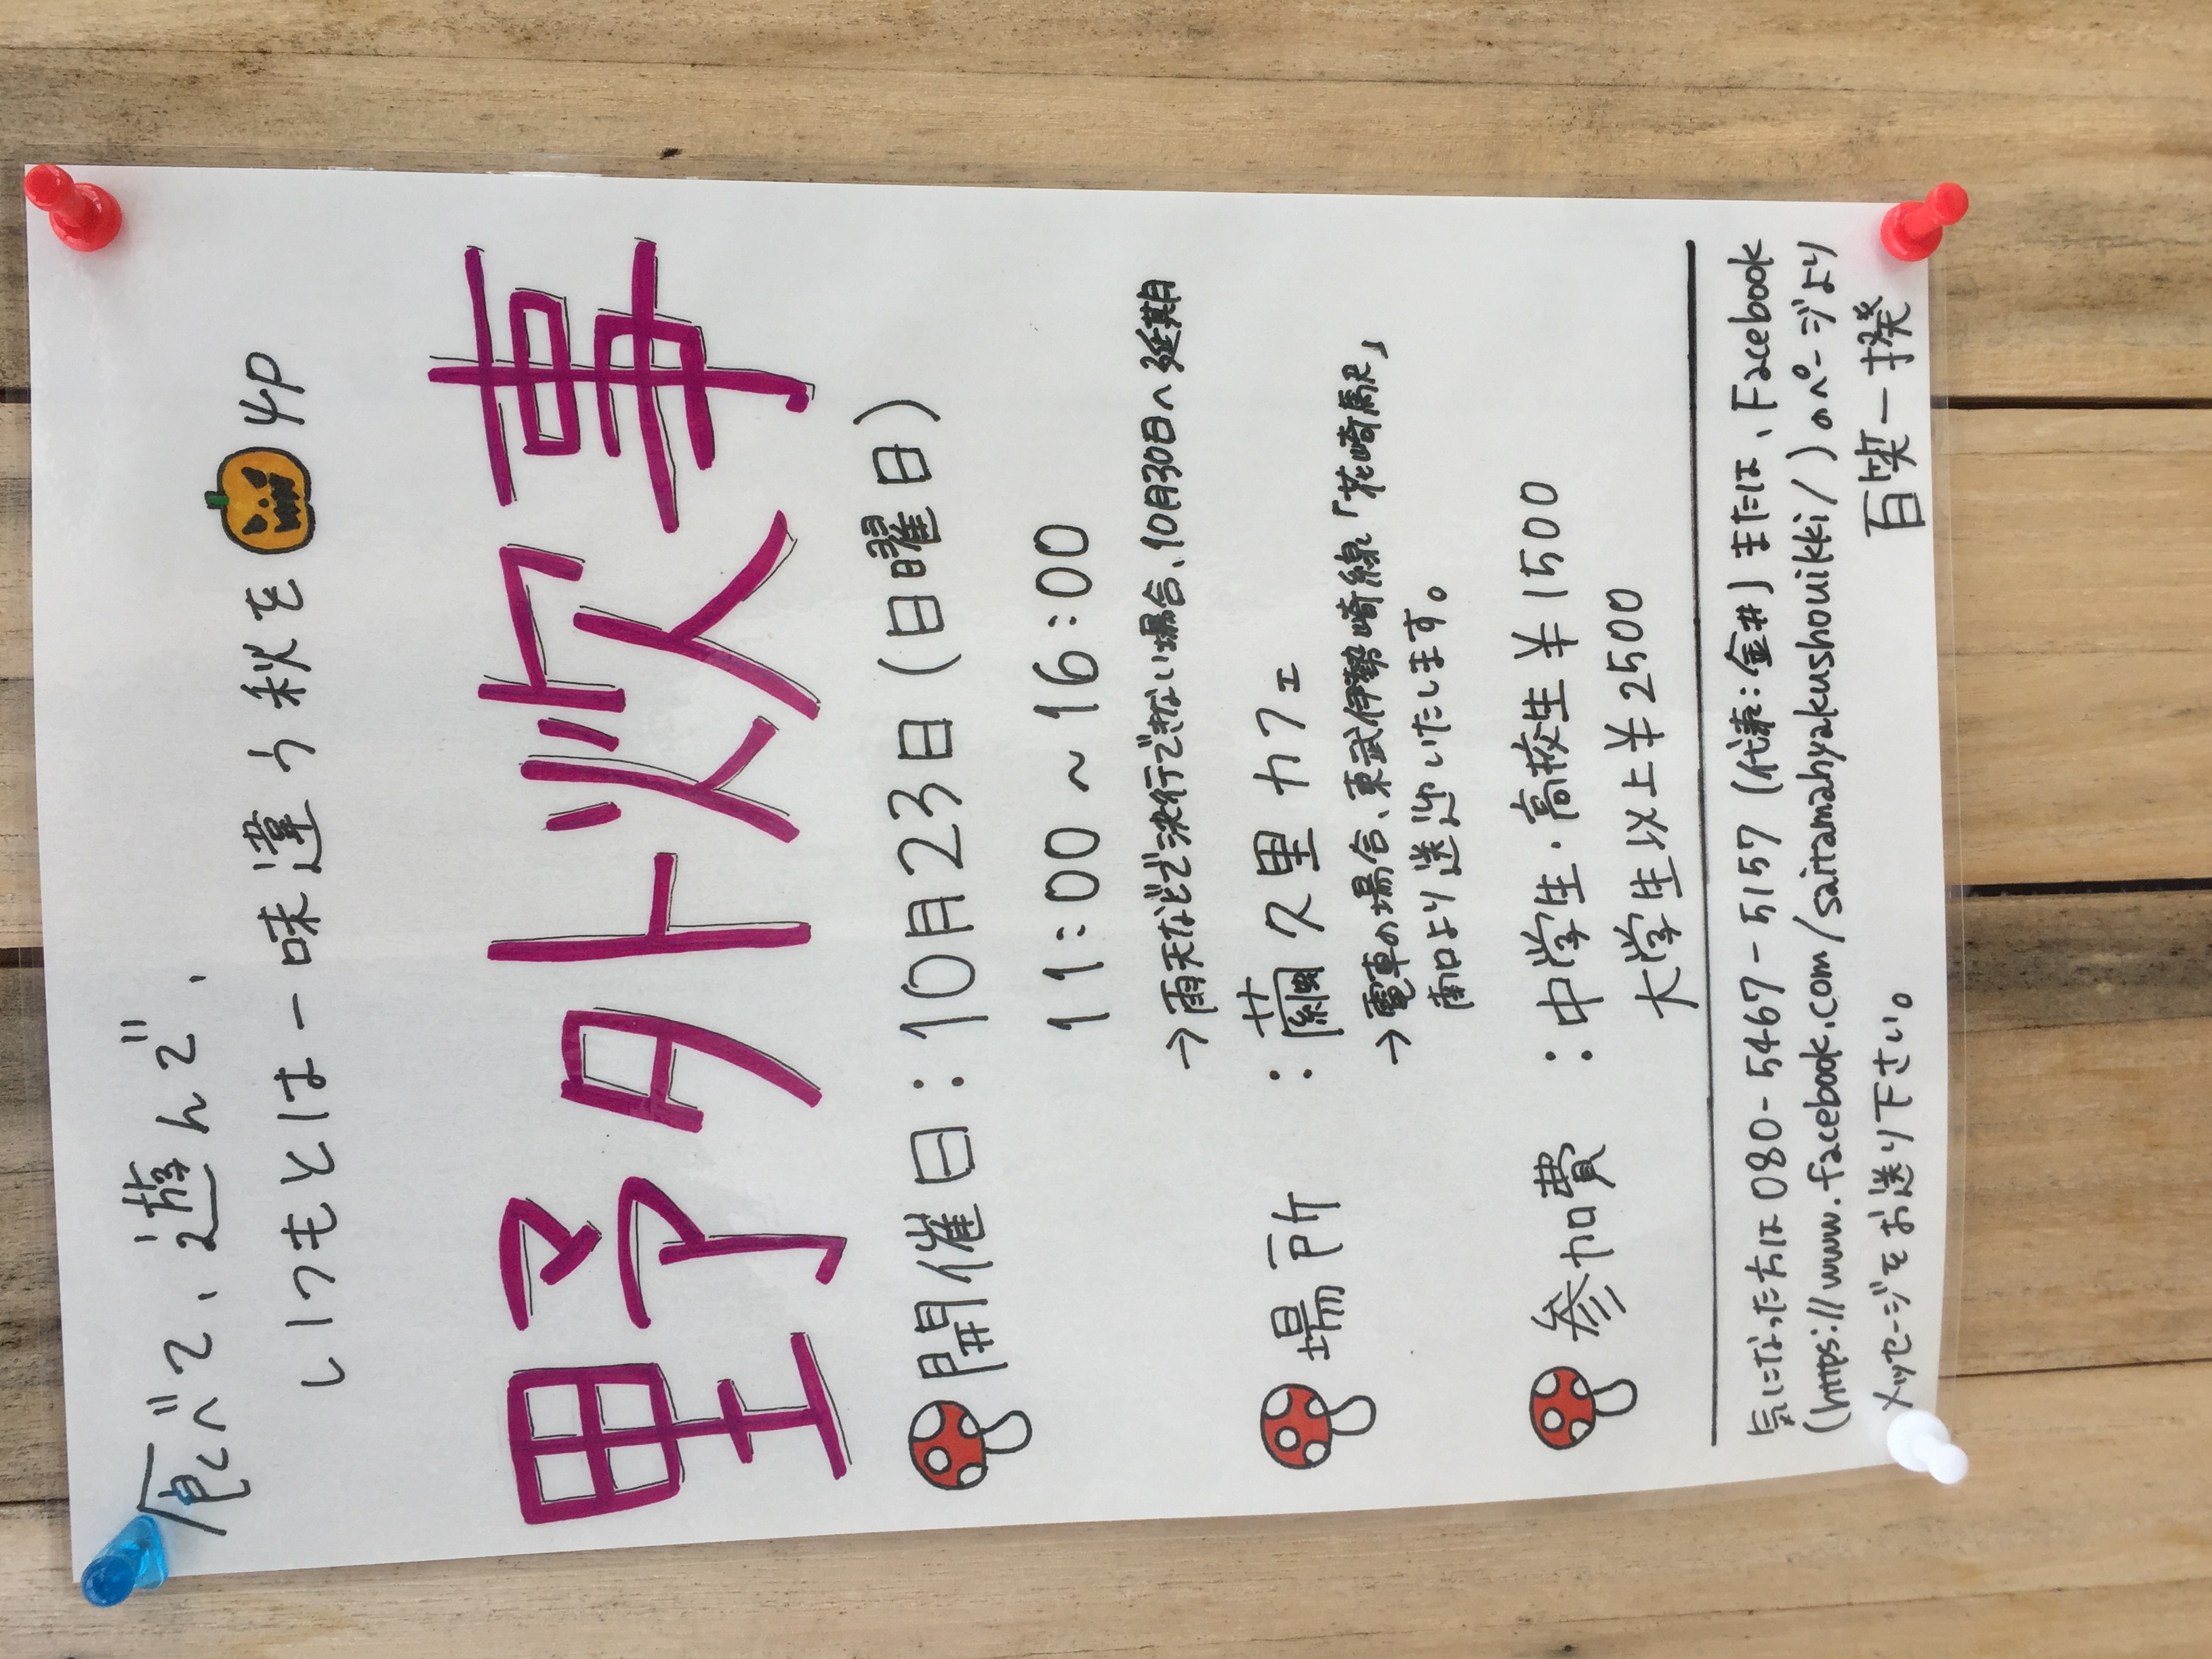 食べて、遊んで、
いつもとは一味違う秋を
野外炊事
開催日：10月23日（日曜日）
11:00～16:00
→雨天などで決行できない場合、10月30日へ延期
場所：繭久里カフェ
→電車の場合、東武伊勢崎線「花崎駅」
南口より送迎いたします。
参加費：中学生・高校生￥1500
大学生以上￥2500
気になった方は080-5467-5157（代表：金井）または、Facebook
(https://www.facebook.com/saitamahyakushouikki/）のページより
メッセージをお送り下さい。
百笑一揆